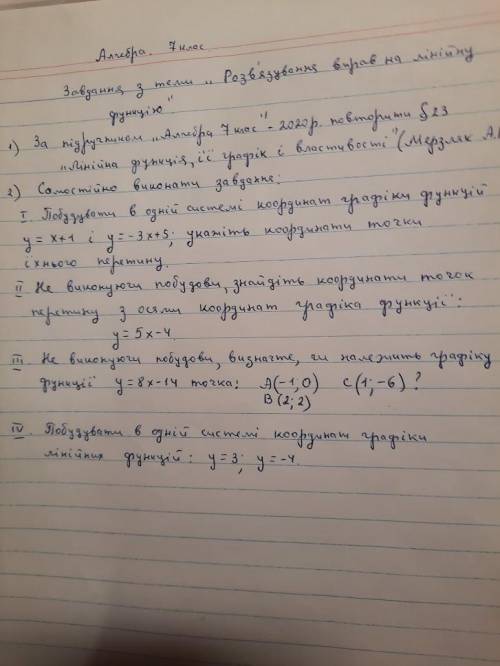 Алгебра. 7 клас
Завдання з теми „Розв'язування вправ на лінійну
функцію"
1) За підручником „Алгебра 7 клас" - 2020р. повторити § 23
„Лінійна функція, її графік і властивості" (Мерзляк А.
2) Самостійно виконати завдання:
I. Побудувати в одній системі координат графіки функцій
y = x+1 і y = -3x+5; укажіть координати точки
їхнього перетину.
II Не виконуючи побудови, знайдіть координати точок
перетину з осями координат графіка функції:
y = 5x-4.
III. Не виконуючи побудови, визначте, чи належить графіку
функції y = 8x-14 точка: A(-1,0) C(1;-6)?
B(2;2)
IV. Побудувати в одній системі координат графіки
лінійних функцій: y = 3; y = -4.